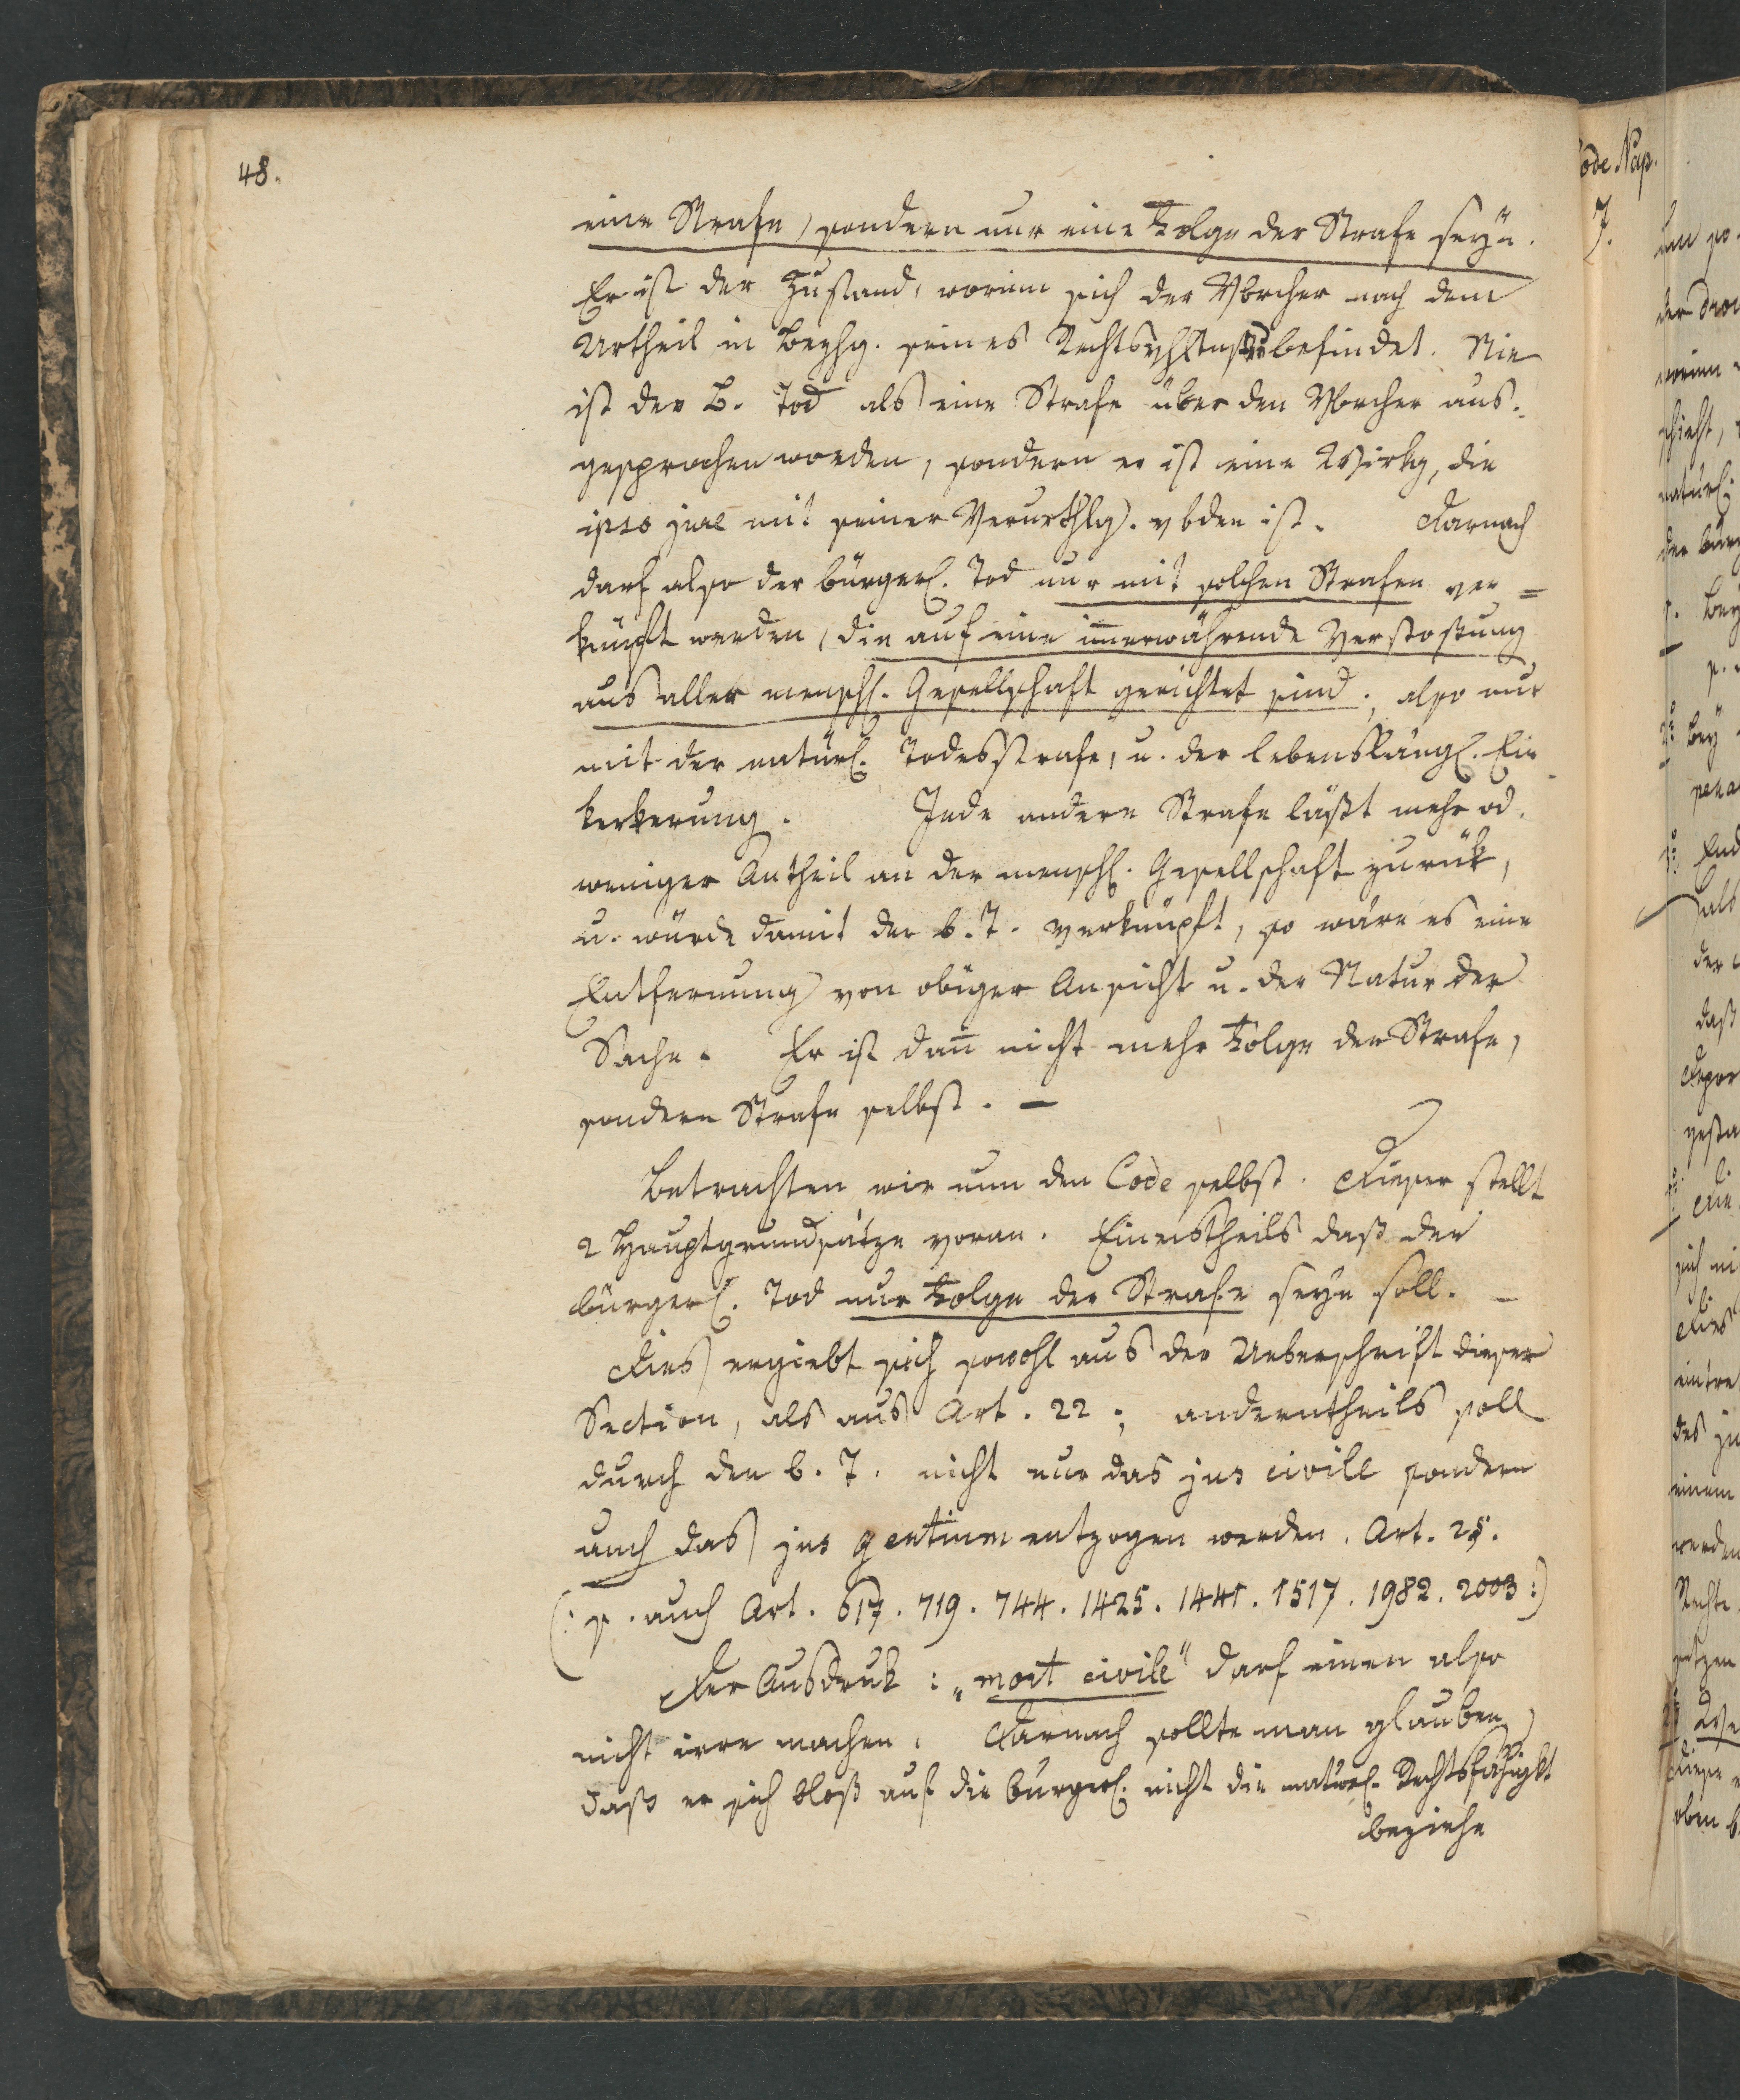 48.
eine Strafe, sondern nur eine Folge der Strafe seyn.
Er ist der Zustand, worinn sich der Vbrcher nach dem
Urtheil in Bezhg. seines Rechtsvhltnss befindet. Nie
ist der B. Tod als eine Strafe über den Vbrcher aus-
gesprochen worden, sondern er ist eine Wirkg, die
ipso jure mit seiner Verurthlg. vbden ist. Darnach
darf also der bürgerl. Tod nur mit solchen Strafen ver=
knüpft werden, die auf eine im̄erwährende Verstoßung
aus aller menschl. Gesellschaft gerichtet sind; also nur
mit der natürl. Todesstrafe, u. der lebenslängl. Ein-
kerkerung. Jede andere Strafe läßt mehr od.
weniger Antheil an der menschl. Gesellschaft zurük,
u. würde damit der b. T. verknüpft, so wäre es eine
Entfernung von obiger Ansicht u. der Natur der
Sache. Er ist dan̄ nicht mehr Folge der Strafe,
sondern Strafe selbst. —
Betrachten wir nun den Code selbst. Dieser stellt
2 Hauptgrundsätze voran. Einestheils daß der
bürgerl. Tod nur Folge der Strafe seyn soll. —
Dies ergiebt sich sowohl aus der Ueberschrift dieser
Section, als aus Art. 22; anderntheils soll
durch den b. T. nicht nur das jus civile sondern
auch das jus gentium entzogen werden. Art. 25.
(: s. auch Art. 617. 719. 744. 1425. 1441. 1517. 1982. 2003 :)
Der Ausdruk: „mort civile" darf einen also
nicht irre machen. Darnach sollte man glauben,
daß er sich bloß auf die bürgerl. nicht die natürl. Rechtsfähigkt
beziehe
Code Nap.
7.